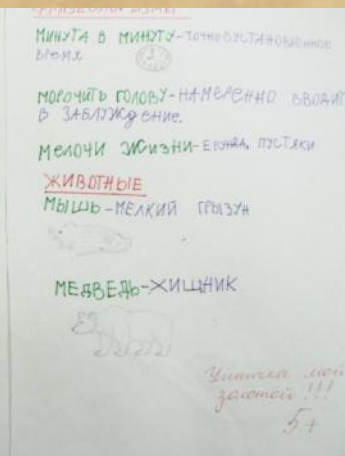 ФРАЗЕОЛОГИЗМЫ
МИНУТА В МИНУТУ-ТОЧНО В УСТАНОВЛЕННОЕ
ВРЕМЯ
МОРОЧИТЬ ГОЛОВУ-НАМЕРЕННО ВВОДИТ
В ЗАБЛУЖДЕНИЕ.
МЕЛОЧИ ЖИЗНИ-ЕРУНДА, ПУСТЯКИ
ЖИВОТНЫЕ
МЫШЬ-МЕЛКИЙ ГРЫЗУН
МЕДВЕДЬ-ХИЩНИК
Умничка мой
золотой!!!
5+